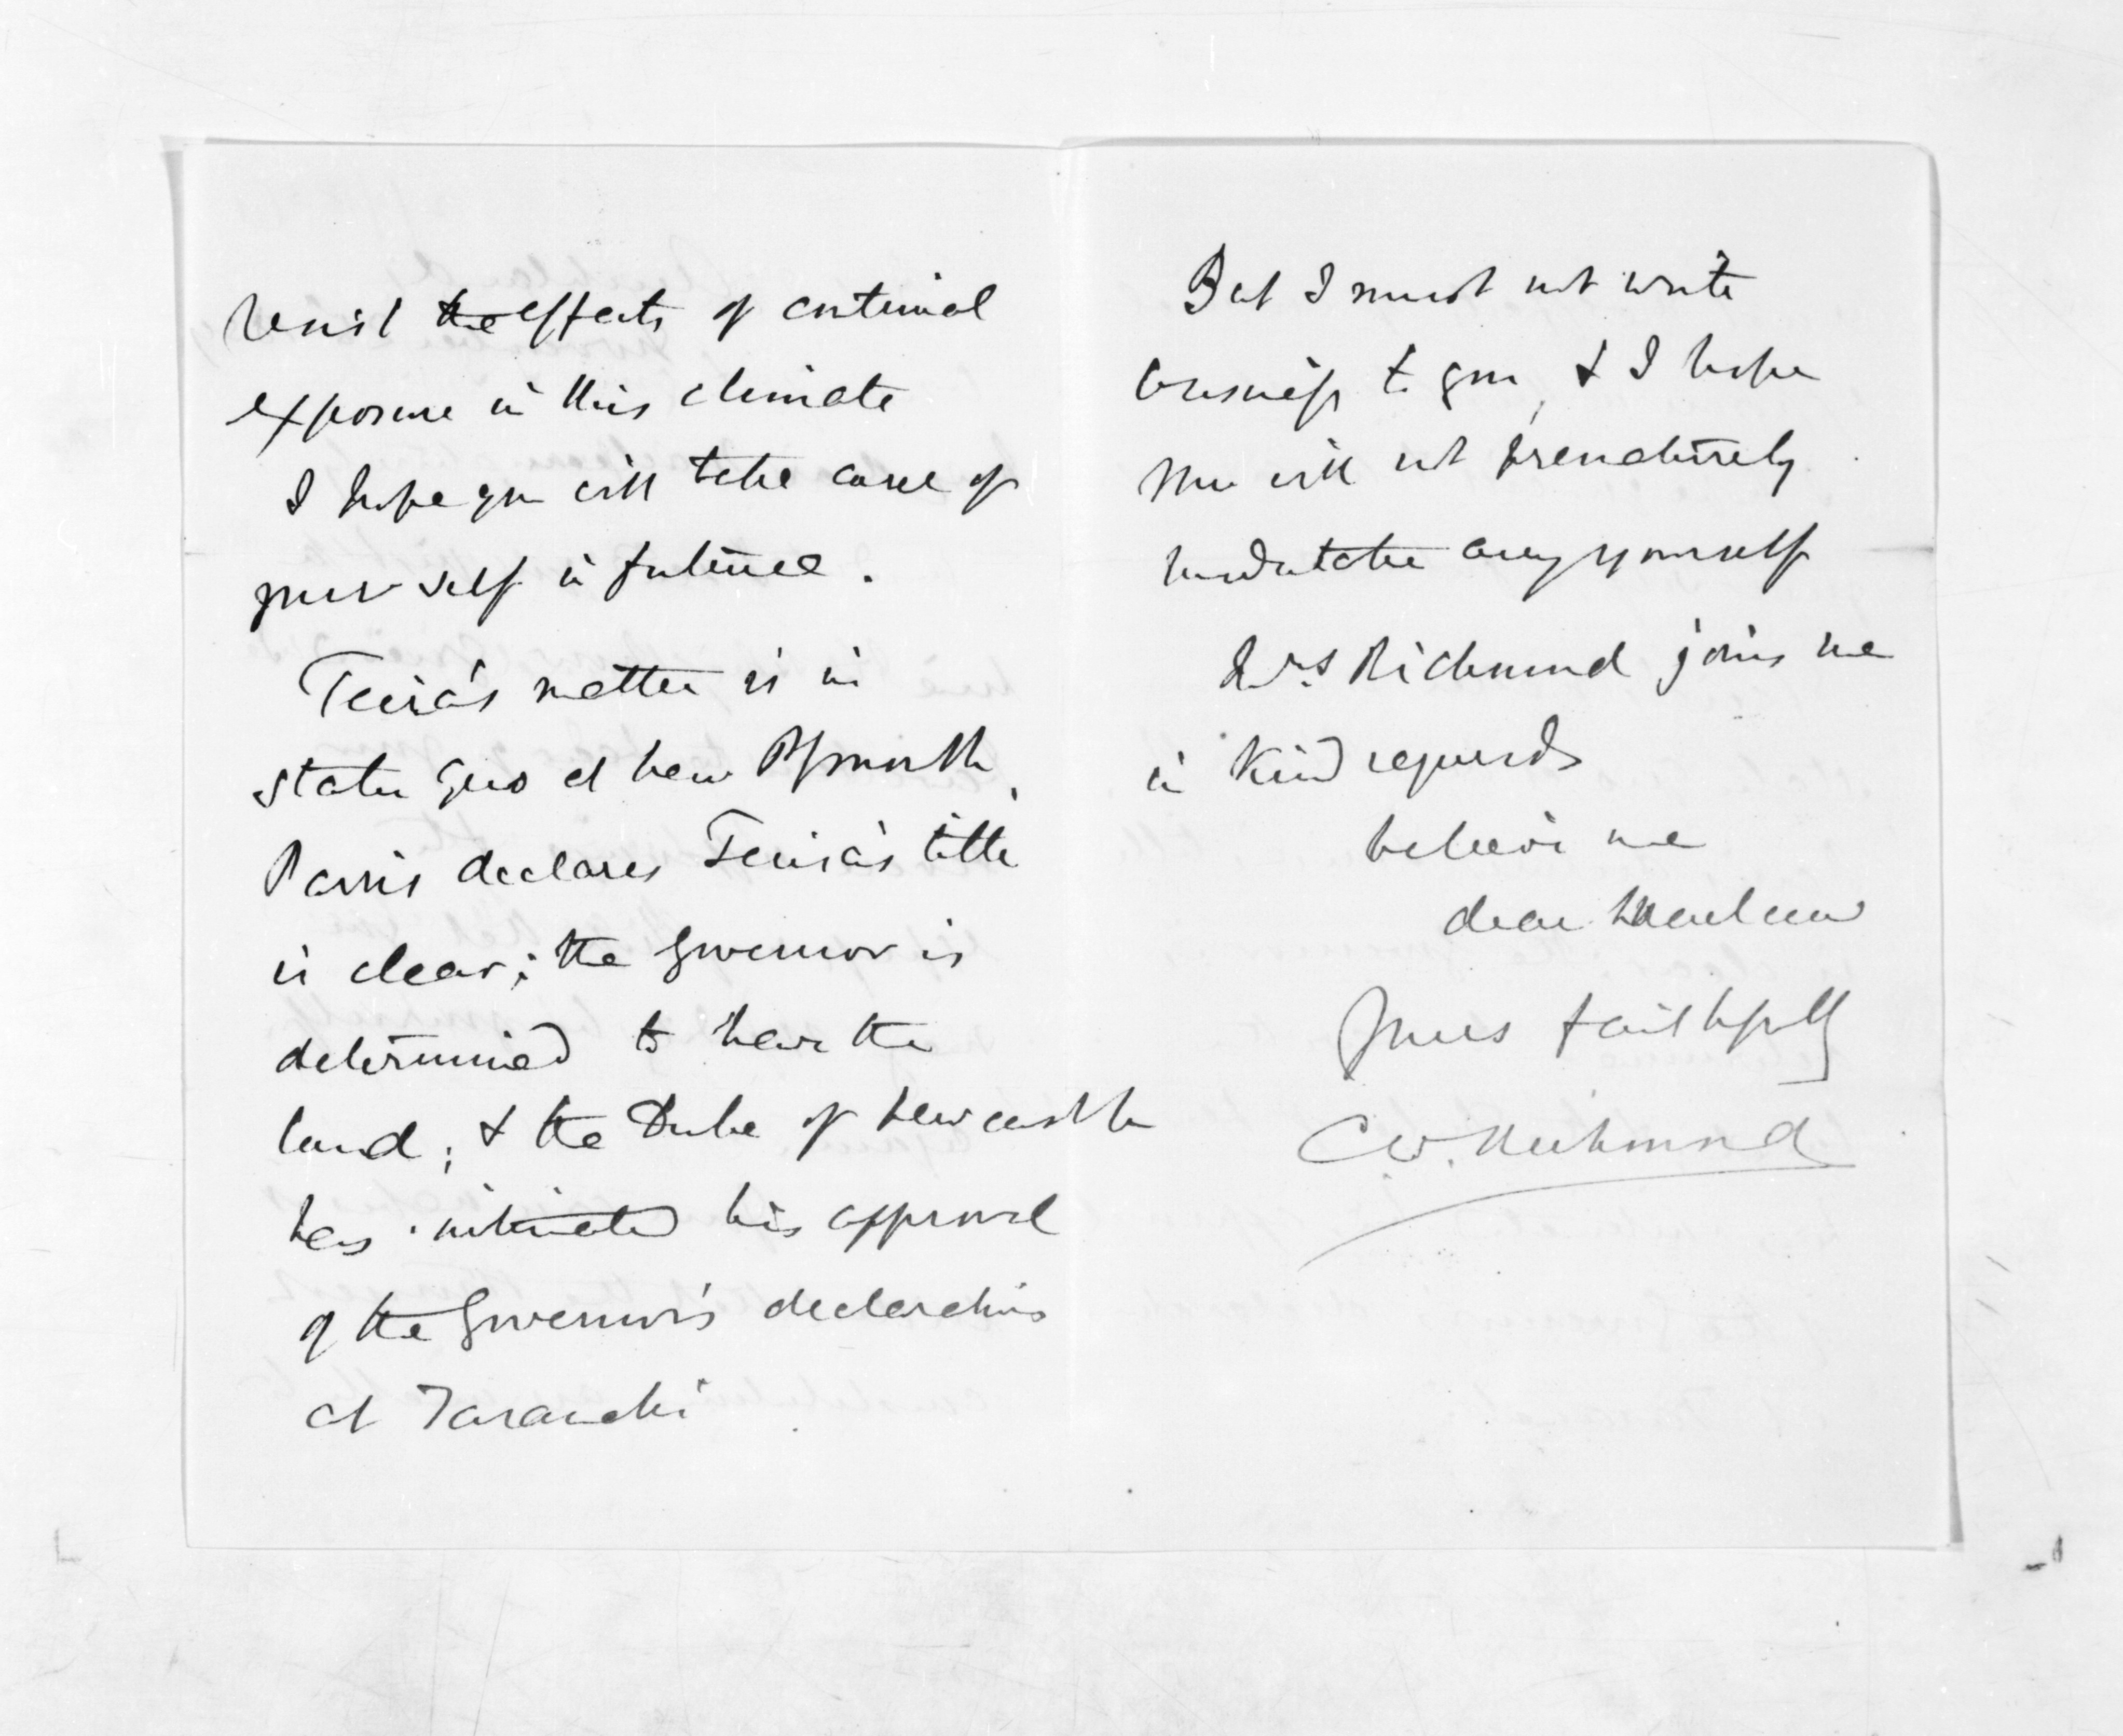 resist the effects of continual
exposure in this climate
I hope you will take care of
yourself in future.
Teira's matter is in
statu quo at New Plymouth,
Parris declares Teira's title
is clear; the Governor is
determined to have the
land; & the Duke of Newcastle
has intimated his approval
of the Governor's declarations
at Taranaki
But I must not write
business to you, & I hope
you will not prematurely
undertake any yourself
Mrs Richmond joins me
in kind regards
believe me
dear McLean
Yours faithfully
C.W. Richmond